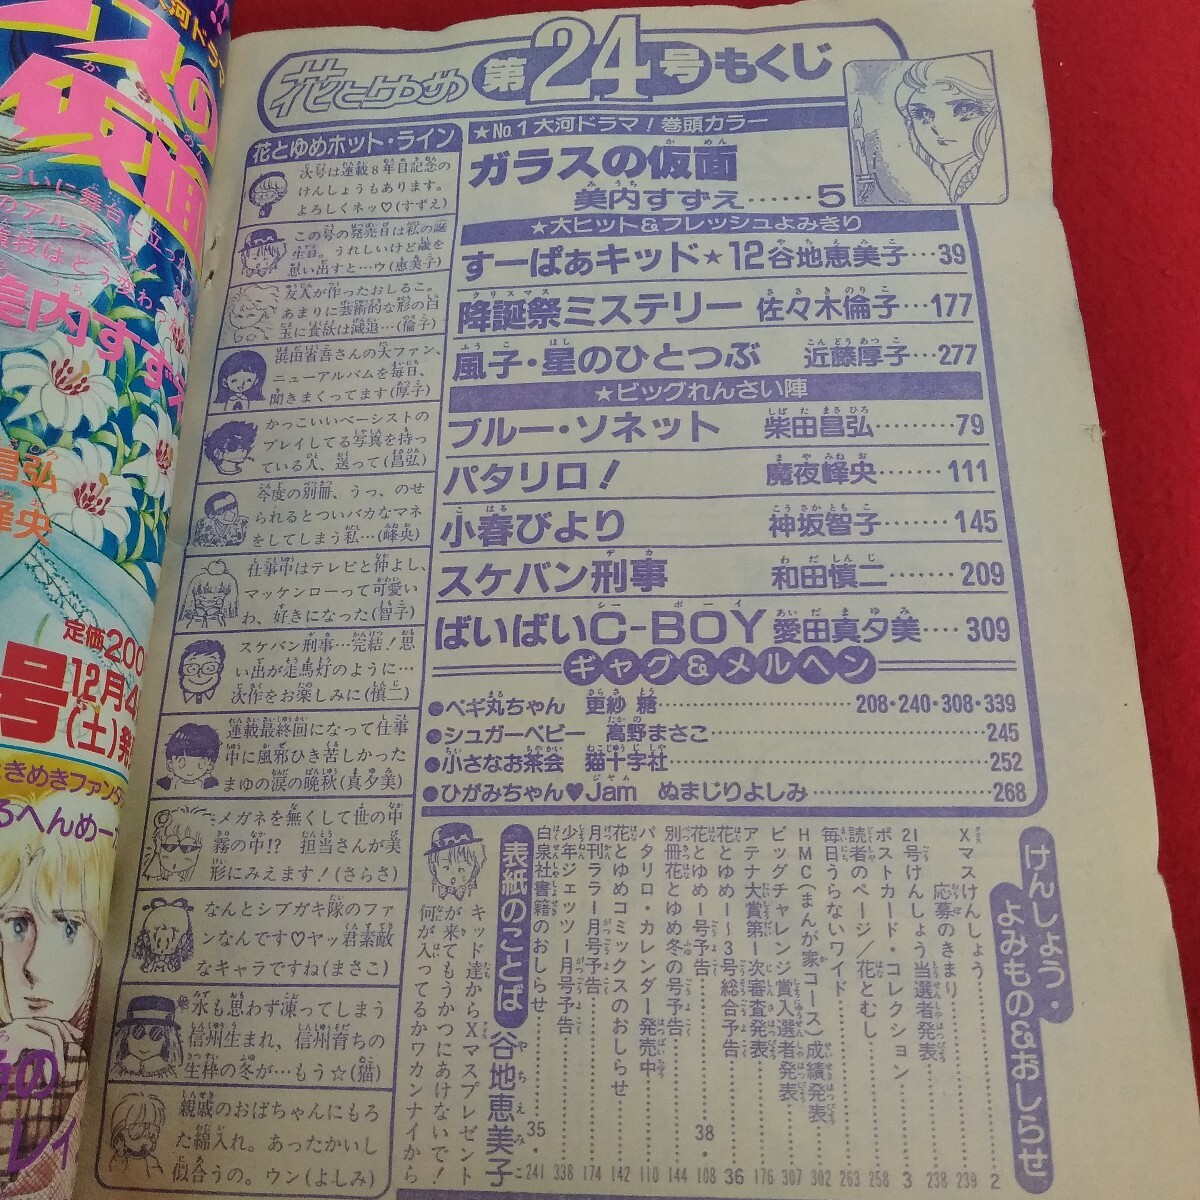 花とゆめ 第24号もくじ
★No1大河ドラマ!巻頭カラー
ガラスの仮面
美内すずえ……5
★大ヒット&フレッシュよみきり
すーぱぁキッド★12 谷地恵美子…39
降誕祭ミステリー 佐々木倫子…177
風子・星のひとつぶ 近藤厚子…277
★ビッグれんさい陣
ブルー・ソネット 柴田昌弘………79
パタリロ! 魔夜峰央………111
小春びより 神坂智子………145
スケバン刑事 和田慎二………209
ばいばいC-BOY 愛田真夕美…309
ギャグ&メルヘン
●ペギ丸ちゃん 更紗 糖………208・240・308・339
●シュガーベビー 高野まさこ………245
●小さなお茶会 猫十字社………252
●ひがみちゃん♥Jam ぬまじりよしみ………268
花とゆめホット・ライン
次号は連載8年目記念の
けんしょうもあります。
よろしくネッ♡(すずえ)
この号の発売日は私の誕
生日。うれしいけど歳を
思い出すと…ウ(恵美子)
友人が作ったおしるこ。
あまりに芸術的な形の白
玉に食欲は減退…(倫子)
浜田省吾さんの大ファン、
ニューアルバムを毎日、
聞きまくってます(厚子)
かっこいいベーシストの
プレイしてる写真を持っ
ている人、送って(昌弘)
今度の別冊、うっ、のせ
られるとついバカなマネ
をしてしまう私…(峰央)
仕事中はテレビと仲よし、
マッケンローって可愛い
わ、好きになった(智子)
スケバン刑事…完結!思
い出が走馬灯のように…
次作をお楽しみに(慎二)
連載最終回になって仕事
中に風邪ひき苦しかった
まゆの涙の晩秋(真夕美)
メガネを無くして世の中
霧の中!?担当さんが美
形にみえます!(さらさ)
なんとシブガキ隊のファ
ンなんです♡ヤッ君素敵
なキャラですね(まさこ)
水も思わず凍ってしまう
信州生まれ、信州育ちの
生粋の冬が…もう☆(猫)
親戚のおばちゃんにもろ
た綿入れ。あったかいし
似合うの。ウン(よしみ)
けんしょう・よみもの&おしらせ
Xマスけんしょう………2
応募のきまり………239
21号けんしょう当選者発表………238
ポストカード・コレクション………3
読者のページ/花とむし………258
毎日うらないワイド………263
HMC(まんが家コース)成績発表………302
ビッグチャレンジ賞入選者発表………307
アテナ大賞第一次審査発表………176
花とゆめ1〜3号総合予告………36
花とゆめ1号予告………38・108
別冊花とゆめ冬の号予告………144
パタリロ・カレンダー発売中………110
花とゆめコミックスのおしらせ………142
月刊ララ1月号予告………174
少年ジェッツ1月号予告………338
白泉社書籍のおしらせ………35・241
表紙のことば 谷地恵美子
キッド達からXマスプレゼント
が来てもうかつにあけないで!
何が入ってるかワカンナイから
の
仮面
ついに舞台に立った
演技はどう変わ
美内すずえ
昌弘
峰央
定価200
号
12月4
(土)発